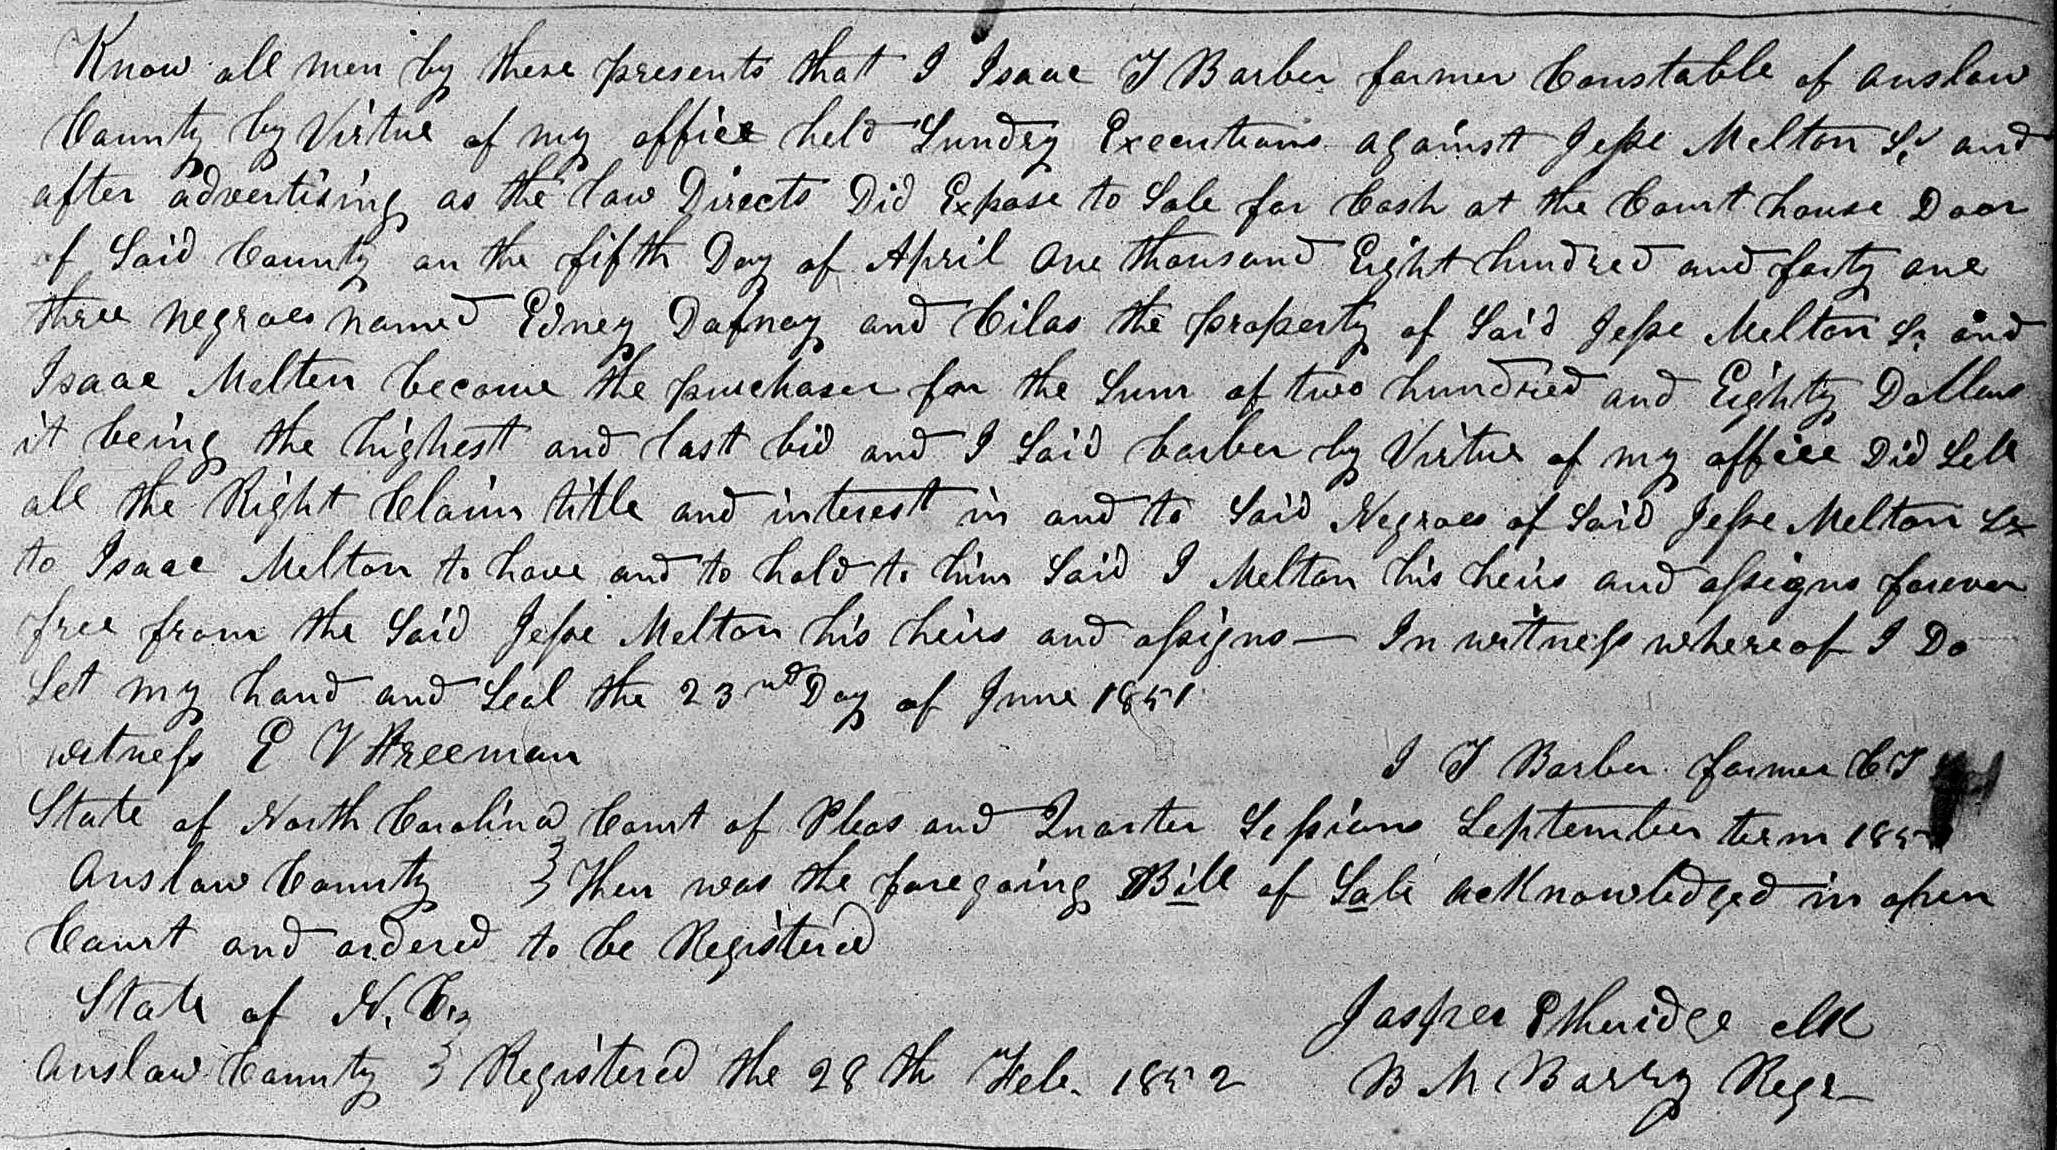 Know all men by these presents that I Isaac T Barber former Constable of Onslow
County by Virtue of my office held Sundry Executions against Jesse Melton Sr and
after advertising as the law Directs Did Expose to Sale for Cash at the Court house Door
of Said County on the fifth Day of April one thousand Eight hundred and forty one
three negroes named Edney Dafney and Cilas the property of Said Jesse Melton Sr. and
Isaac Melton become the purchaser for the Sum of two hundred and Eighty Dollars
it being the highest and last bid and I Said barber by Virtue of my office Did Sell
all the Right Claim title and interest in and to Said Negroes of Said Jesse Melton Sr
to Isaac Melton to have and to hold to him Said I Melton his heirs and assigns forever
free from the Said Jesse Melton his heirs and assigns — In witness whereof I Do
Set my hand and Seal the 23nd Day of June 1851
witness E V Freeman
I T Barber former C T
State of North Carolina } Court of Pleas and Quarter Sessions September term 185
Onslow County } Then was the foregoing Bill of Sale acknowledged in open
Court and ordered to be Registered
Jasper Etheridge clk
State of N. C. }
Onslow County } Registered the 28th Feb. 1852 B M Barry Regr